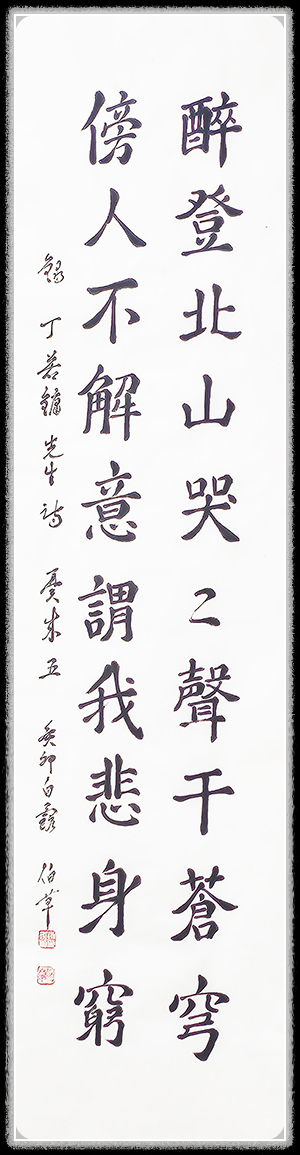 醉登北山哭〻聲干蒼穹
傍人不解意謂我悲身窮
錄 丁若鏞先生詩 憂來五 癸卯白露 伯草